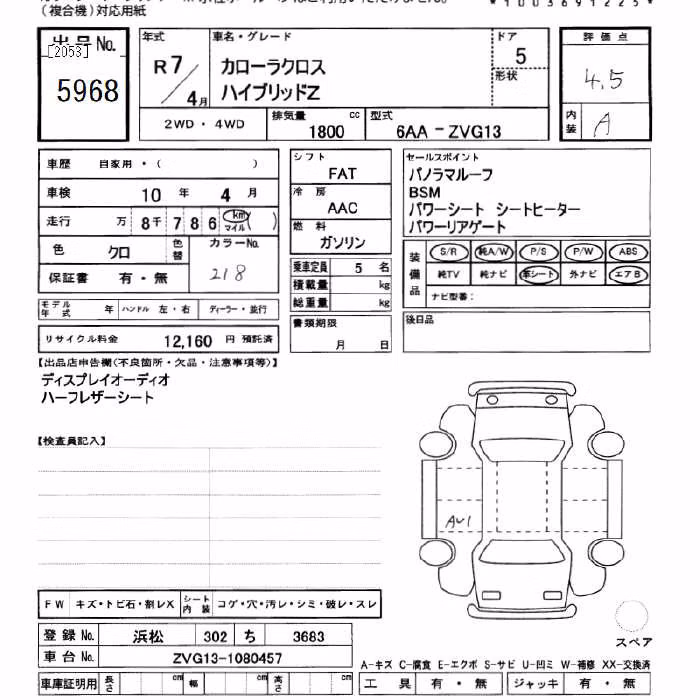 (複合機)対応用紙
*1003691225*
出品No.
[2053]
5968
年式
R7/4月
車名・グレード
カローラクロス
ハイブリッドZ
ドア
5
形状
評価点
4.5
内装
A
2WD・4WD
排気量
1800 cc
型式
6AA-ZVG13
車歴 自家用・( )
車検 10年 4月
走行 万 8千 7 8 6 km マイル ( )
色 クロ
色替
カラーNo.
218
保証書 有・無
モデル年式 年 ハンドル 左・右 ディーラー・並行
リサイクル料金 12,160 円 預託済
シフト
FAT
冷房
AAC
燃料
ガソリン
乗車定員 5 名
積載量 kg
総重量 kg
書類期限
月 日
セールスポイント
パノラマルーフ
BSM
パワーシート シートヒーター
パワーリアゲート
装備品
S/R 純A/W P/S P/W ABS
純TV 純ナビ 革シート 外ナビ エアB
ナビ型番:
後日品
【出品店申告欄(不良箇所・欠品・注意事項等)】
ディスプレイオーディオ
ハーフレザーシート
【検査員記入】
AU1
FW キズ・トビ石・割レX シート内装 コゲ・穴・汚レ・シミ・破レ・スレ
登録No. 浜松 302 ち 3683
車台No. ZVG13-1080457
車庫証明用 長さ cm 幅 cm 高さ cm
スペア
A-キズ C-腐食 E-エクボ S-サビ U-凹ミ W-補修 XX-交換済
工具 有・無 ジャッキ 有・無